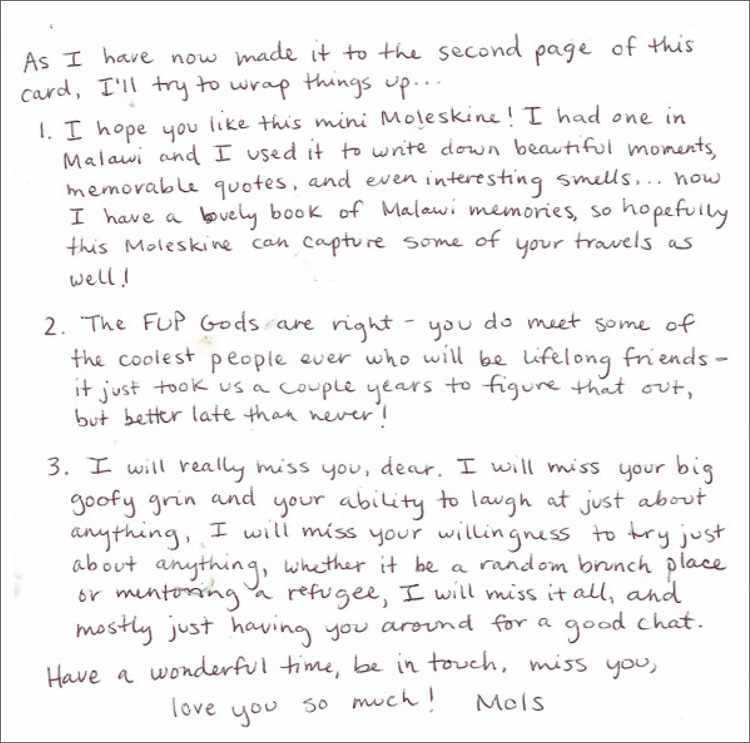 As I have now made it to the second page of this
card, I'll try to wrap things up...
1. I hope you like this mini Moleskine! I had one in
Malawi and I used it to write down beautiful moments,
memorable quotes, and even interesting smells... now
I have a lovely book of Malawi memories, so hopefully
this Moleskine can capture some of your travels as
well!
2. The FUP Gods are right - you do meet some of
the coolest people ever who will be lifelong friends -
it just took us a couple years to figure that out,
but better late than never!
3. I will really miss you, dear. I will miss your big
goofy grin and your ability to laugh at just about
anything, I will miss your willingness to try just
about anything, whether it be a random brunch place
or mentoring a refugee, I will miss it all, and
mostly just having you around for a good chat.
Have a wonderful time, be in touch, miss you,
love you so much! Mols